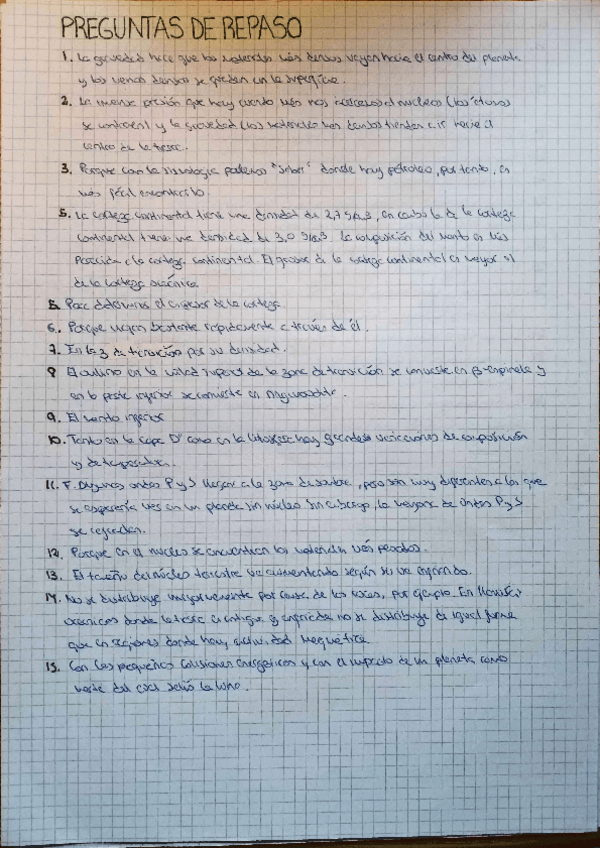 PREGUNTAS DE REPASO
1. La gravedad hace que los materiales más densos vayan hacia el centro del planeta
y los menos densos se queden en la superficie.
2. La inmensa presión que hay cuando más nos acercamos al núcleo (los
se contraen) y la gravedad (los materiales más densos tienden a ir hacia el
centro de la tierra.
3. Porque con la sismología podemos "saber" donde hay petróleo, por tanto, es
más fácil encontrarlo.
5. La corteza continental tiene una densidad de 2,7 g/cm3, en cambio la de la corteza
continental tiene una densidad de 3,0 g/cm3. La composición del manto es más
parecida a la corteza continental. El grosor de la corteza continental es mayor al
de la corteza oceánica.
5. Para determinar el grosor de la corteza.
6. Porque viajan bastante rápidamente a través de él.
7. En la z de transición por su densidad.
8 El olivino en la mitad superior de la zona de transición se convierte en β-espinela y
en la parte inferior se convierte en ringwoodita.
9. El manto inferior
10. Tanto en la capa D" como en la litosfera hay grandes variaciones de composición
y de temperatura.
11. F. Algunas ondas P y S llegan a la zona de sombra, pero son muy diferentes a las que
se esperaría ver en un planeta sin núcleo. Sin embargo, la mayoría de ondas P y S
se
12. Porque en el núcleo se encuentran los materiales más pesados.
13. El tamaño del núcleo terrestre va aumentando según se va enfriando.
14. No se distribuye uniformemente por causa de las rocas, por ejemplo. En llanuras
oceánicas donde la tierra es antigua y enfriada no se distribuye de igual forma
que en regiones donde hay actividad magmática.
15. Con las pequeñas colisiones energéticas y con el impacto de un planeta como
marte del cual salió la luna.